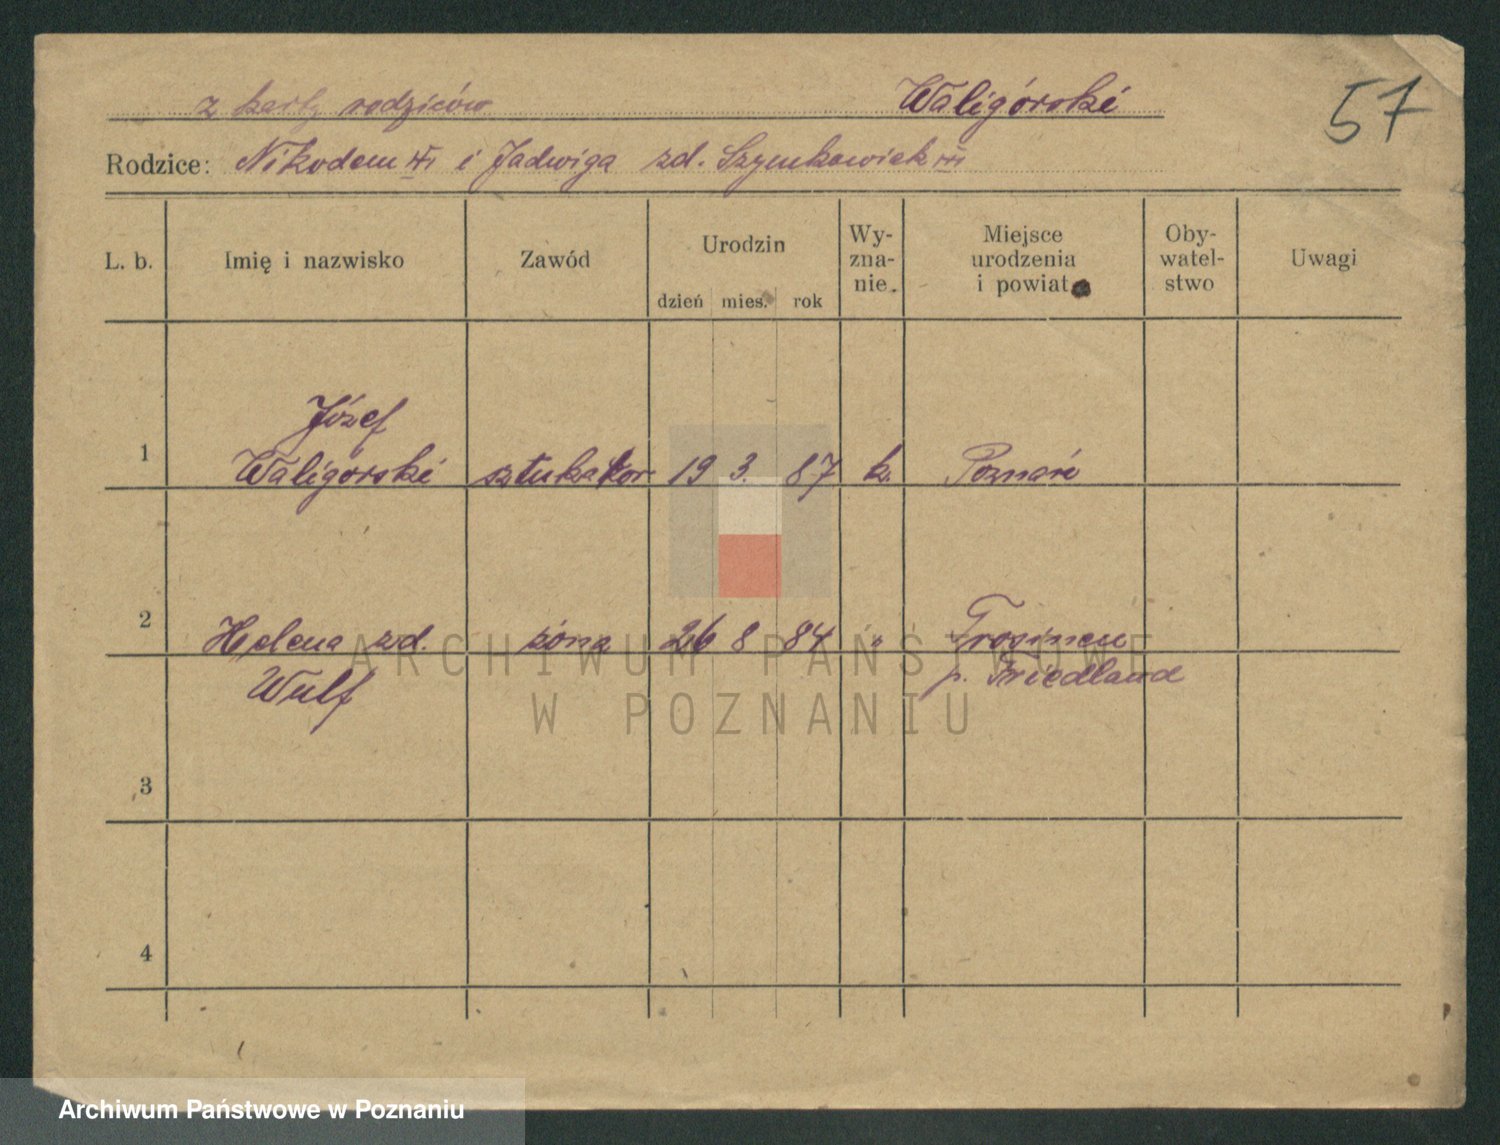 z karty rodziców Waligórski 57
Rodzice: Nikodem i Jadwiga zd. Szymkowiak
L. b. Imię i nazwisko Zawód Urodzin Wy- Miejsce Oby- Uwagi
zna- urodzenia watel-
nie. i powiat stwo
dzień mies. rok
Józef
1 Waligórski sztukator 19 3. 87 k. Poznań
2 Helena zd. żona 26 8 84 "
Wulf p. Friedland
3
4
ARCHIWUM PAŃSTWOWE
W POZNANIU
Archiwum Państwowe w Poznaniu